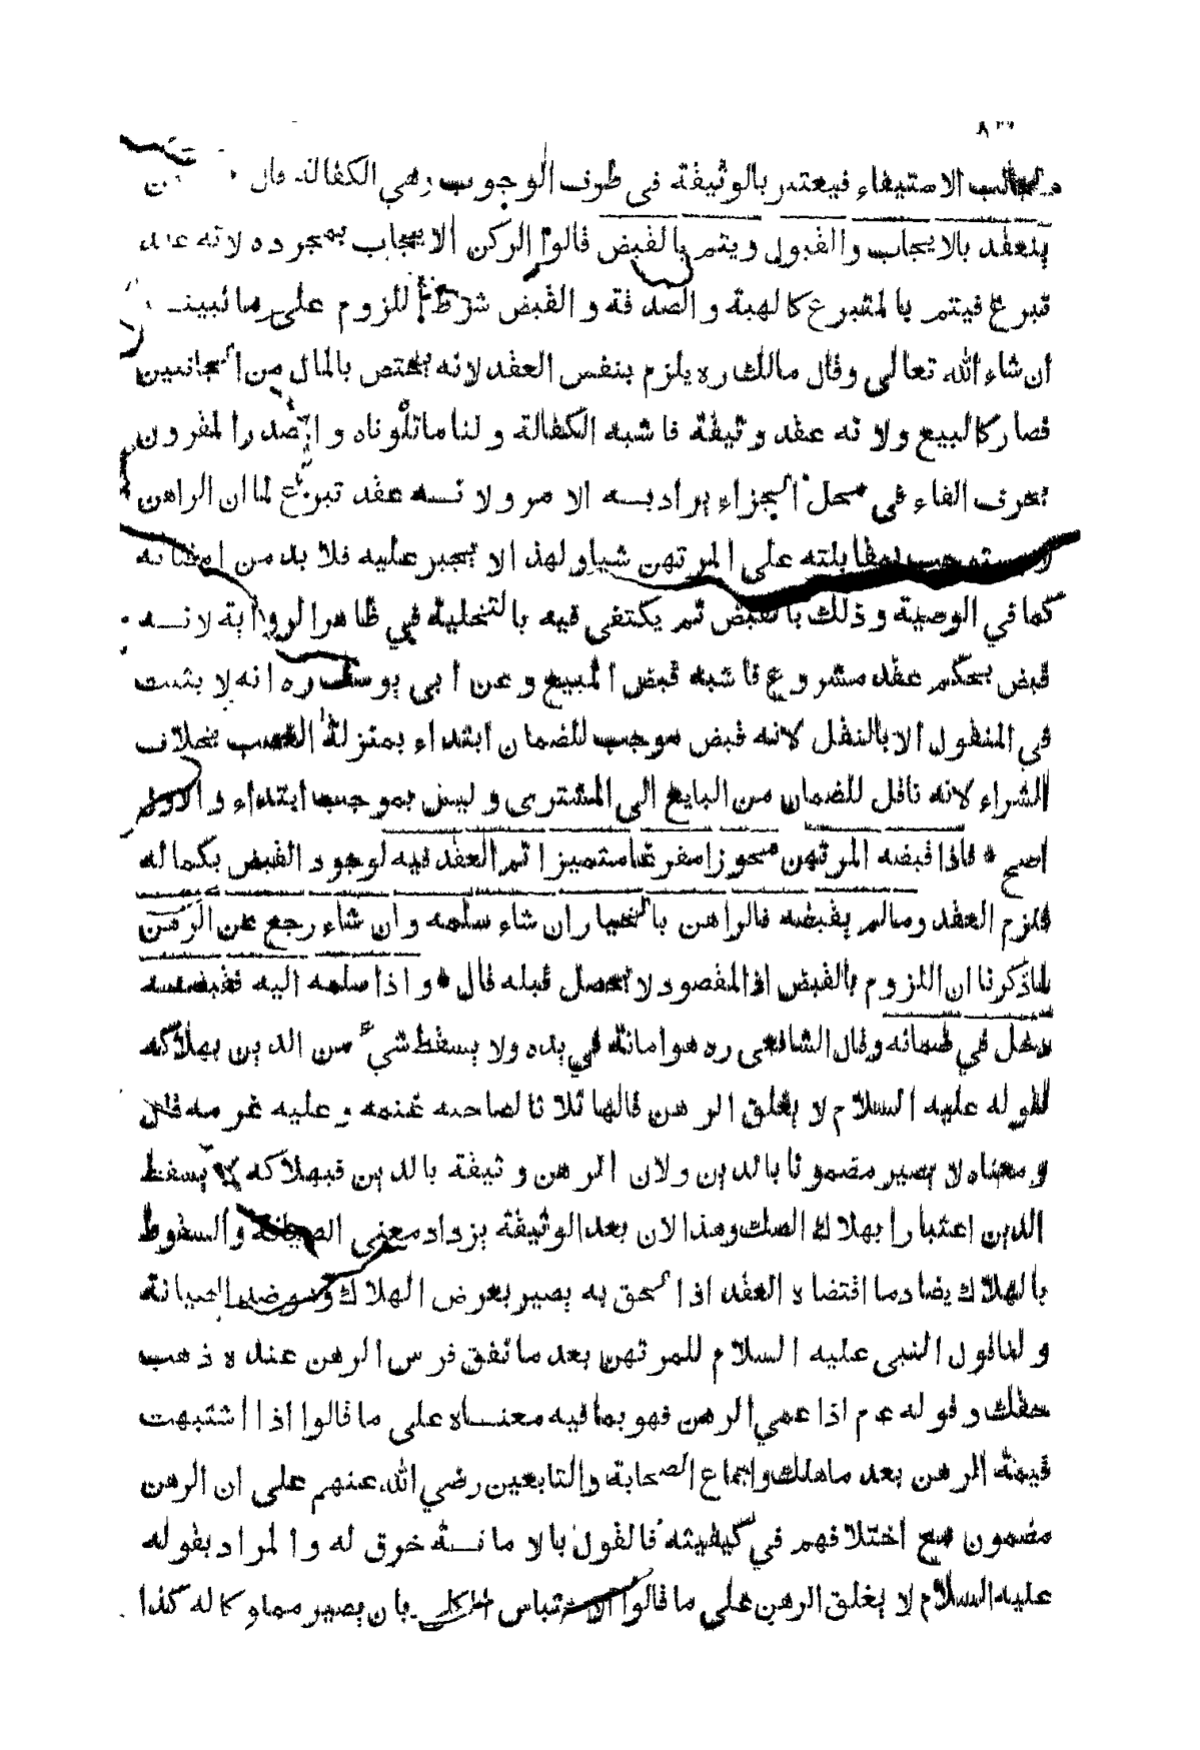 الاستيفاء فيعتبر بالوثيقة في طرف الوجوب وهي الكفالة قال
ينعقد بالايجاب والقبول ويتم بالقبض قالوا الركن الايجاب بمجرده لانه عقد
تبرع فيتم بالمتبرع كالهبة والصدقة والقبض شرط اللزوم على ما نبينه
ان شاء الله تعالى وقال مالك ره يلزم بنفس العقد لانه يختص بالمال من الجانبين
فصار كالبيع ولانه عقد وثيقة فاشبه الكفالة ولنا ما تلوناه والمصدر المقرون
بحرف الفاء في محل الجزاء يراد به الامر ولانه عقد تبرع لما ان الراهن
لا يستوجب بمقابلته على المرتهن شيا ولهذا لا يجبر عليه فلا بد من امضائه
كما في الوصية وذلك بالقبض ثم يكتفى فيه بالتخلية في ظاهر الرواية لانه
قبض بحكم عقد مشروع فاشبه قبض المبيع وعن ابي يوسف ره انه لا يثبت
في المنقول الا بالنقل لانه قبض موجب للضمان ابتداء بمنزلة الغصب بخلاف
الشراء لانه ناقل للضمان من البايع الى المشترى وليس بموجب ابتداء والاول
اصح * فاذا قبضه المرتهن محوزا مفرغا متميزا تم العقد فيه لوجود القبض بكماله
فلزم العقد وما لم يقبضه فالراهن بالخيار ان شاء سلمه وان شاء رجع عن الرهن
لما ذكرنا ان اللزوم بالقبض اذ المقصود لا يحصل قبله قال * واذا سلمه اليه فقبضه
دخل في ضمانه وقال الشافعى ره هو امانة في يده ولا يسقط شيء من الدين بهلاكه
لقوله عليه السلام لا يغلق الرهن قالها ثلاثا لصاحبه غنمه وعليه غرمه قال
ومعناه لا يصير مضمونا بالدين ولان الرهن وثيقة بالدين فبهلاكه لا يسقط
الدين اعتبارا بهلاك الصك وهذا لان بعد الوثيقة يزداد معنى الصيانة والسقوط
بالهلاك يضاد ما اقتضاه العقد اذ الحق به يصير بعرض الهلاك وهو ضد الصيانة
ولنا قول النبى عليه السلام للمرتهن بعد ما نفق فرس الرهن عنده ذهب
حقك وقوله عم اذا عمي الرهن فهو بما فيه معناه على ما قالوا اذا اشتبهت
قيمة الرهن بعد ما هلك واجماع الصحابة والتابعين رضي الله عنهم على ان الرهن
مضمون مع اختلافهم في كيفيته فالقول بالامانة خرق له والمراد بقوله
عليه السلام لا يغلق الرهن على ما قالوا الاحتباس الكلي بان يصير مملوكا له كذا